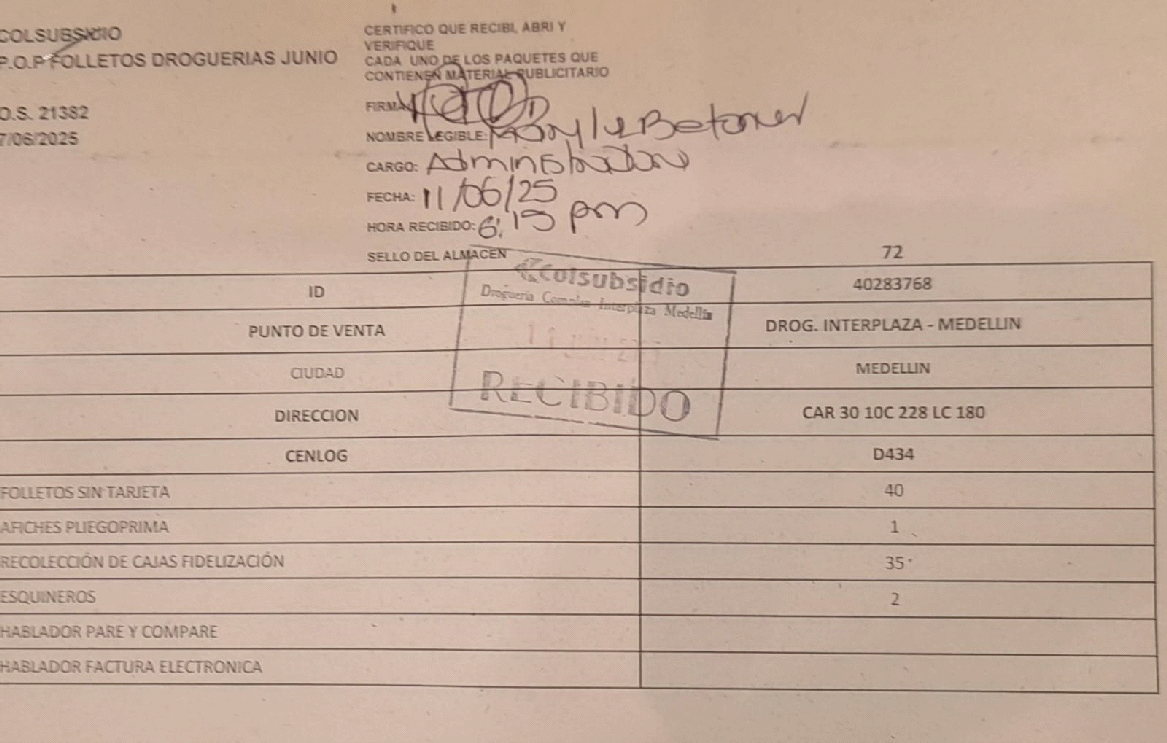 COLSUBSIDIO
P.O.P FOLLETOS DROGUERIAS JUNIO
O.S. 21382
7/06/2025
CERTIFICO QUE RECIBI, ABRI Y
VERIFIQUE
CADA UNO DE LOS PAQUETES QUE
CONTIENEN MATERIAL PUBLICITARIO
FIRMA
NOMBRE LEGIBLE:
CARGO: Administradora
FECHA: 11/06/25
HORA RECIBIDO: 6:15 pm
SELLO DEL ALMACEN
72
Colsubsidio
Droguería Complex Interplaza Medellín
RECIBIDO
ID 40283768
PUNTO DE VENTA DROG. INTERPLAZA - MEDELLIN
CIUDAD MEDELLIN
DIRECCION CAR 30 10C 228 LC 180
CENLOG D434
FOLLETOS SIN TARJETA 40
AFICHES PLIEGOPRIMA 1
RECOLECCIÓN DE CAJAS FIDELIZACIÓN 35
ESQUINEROS 2
HABLADOR PARE Y COMPARE
HABLADOR FACTURA ELECTRONICA